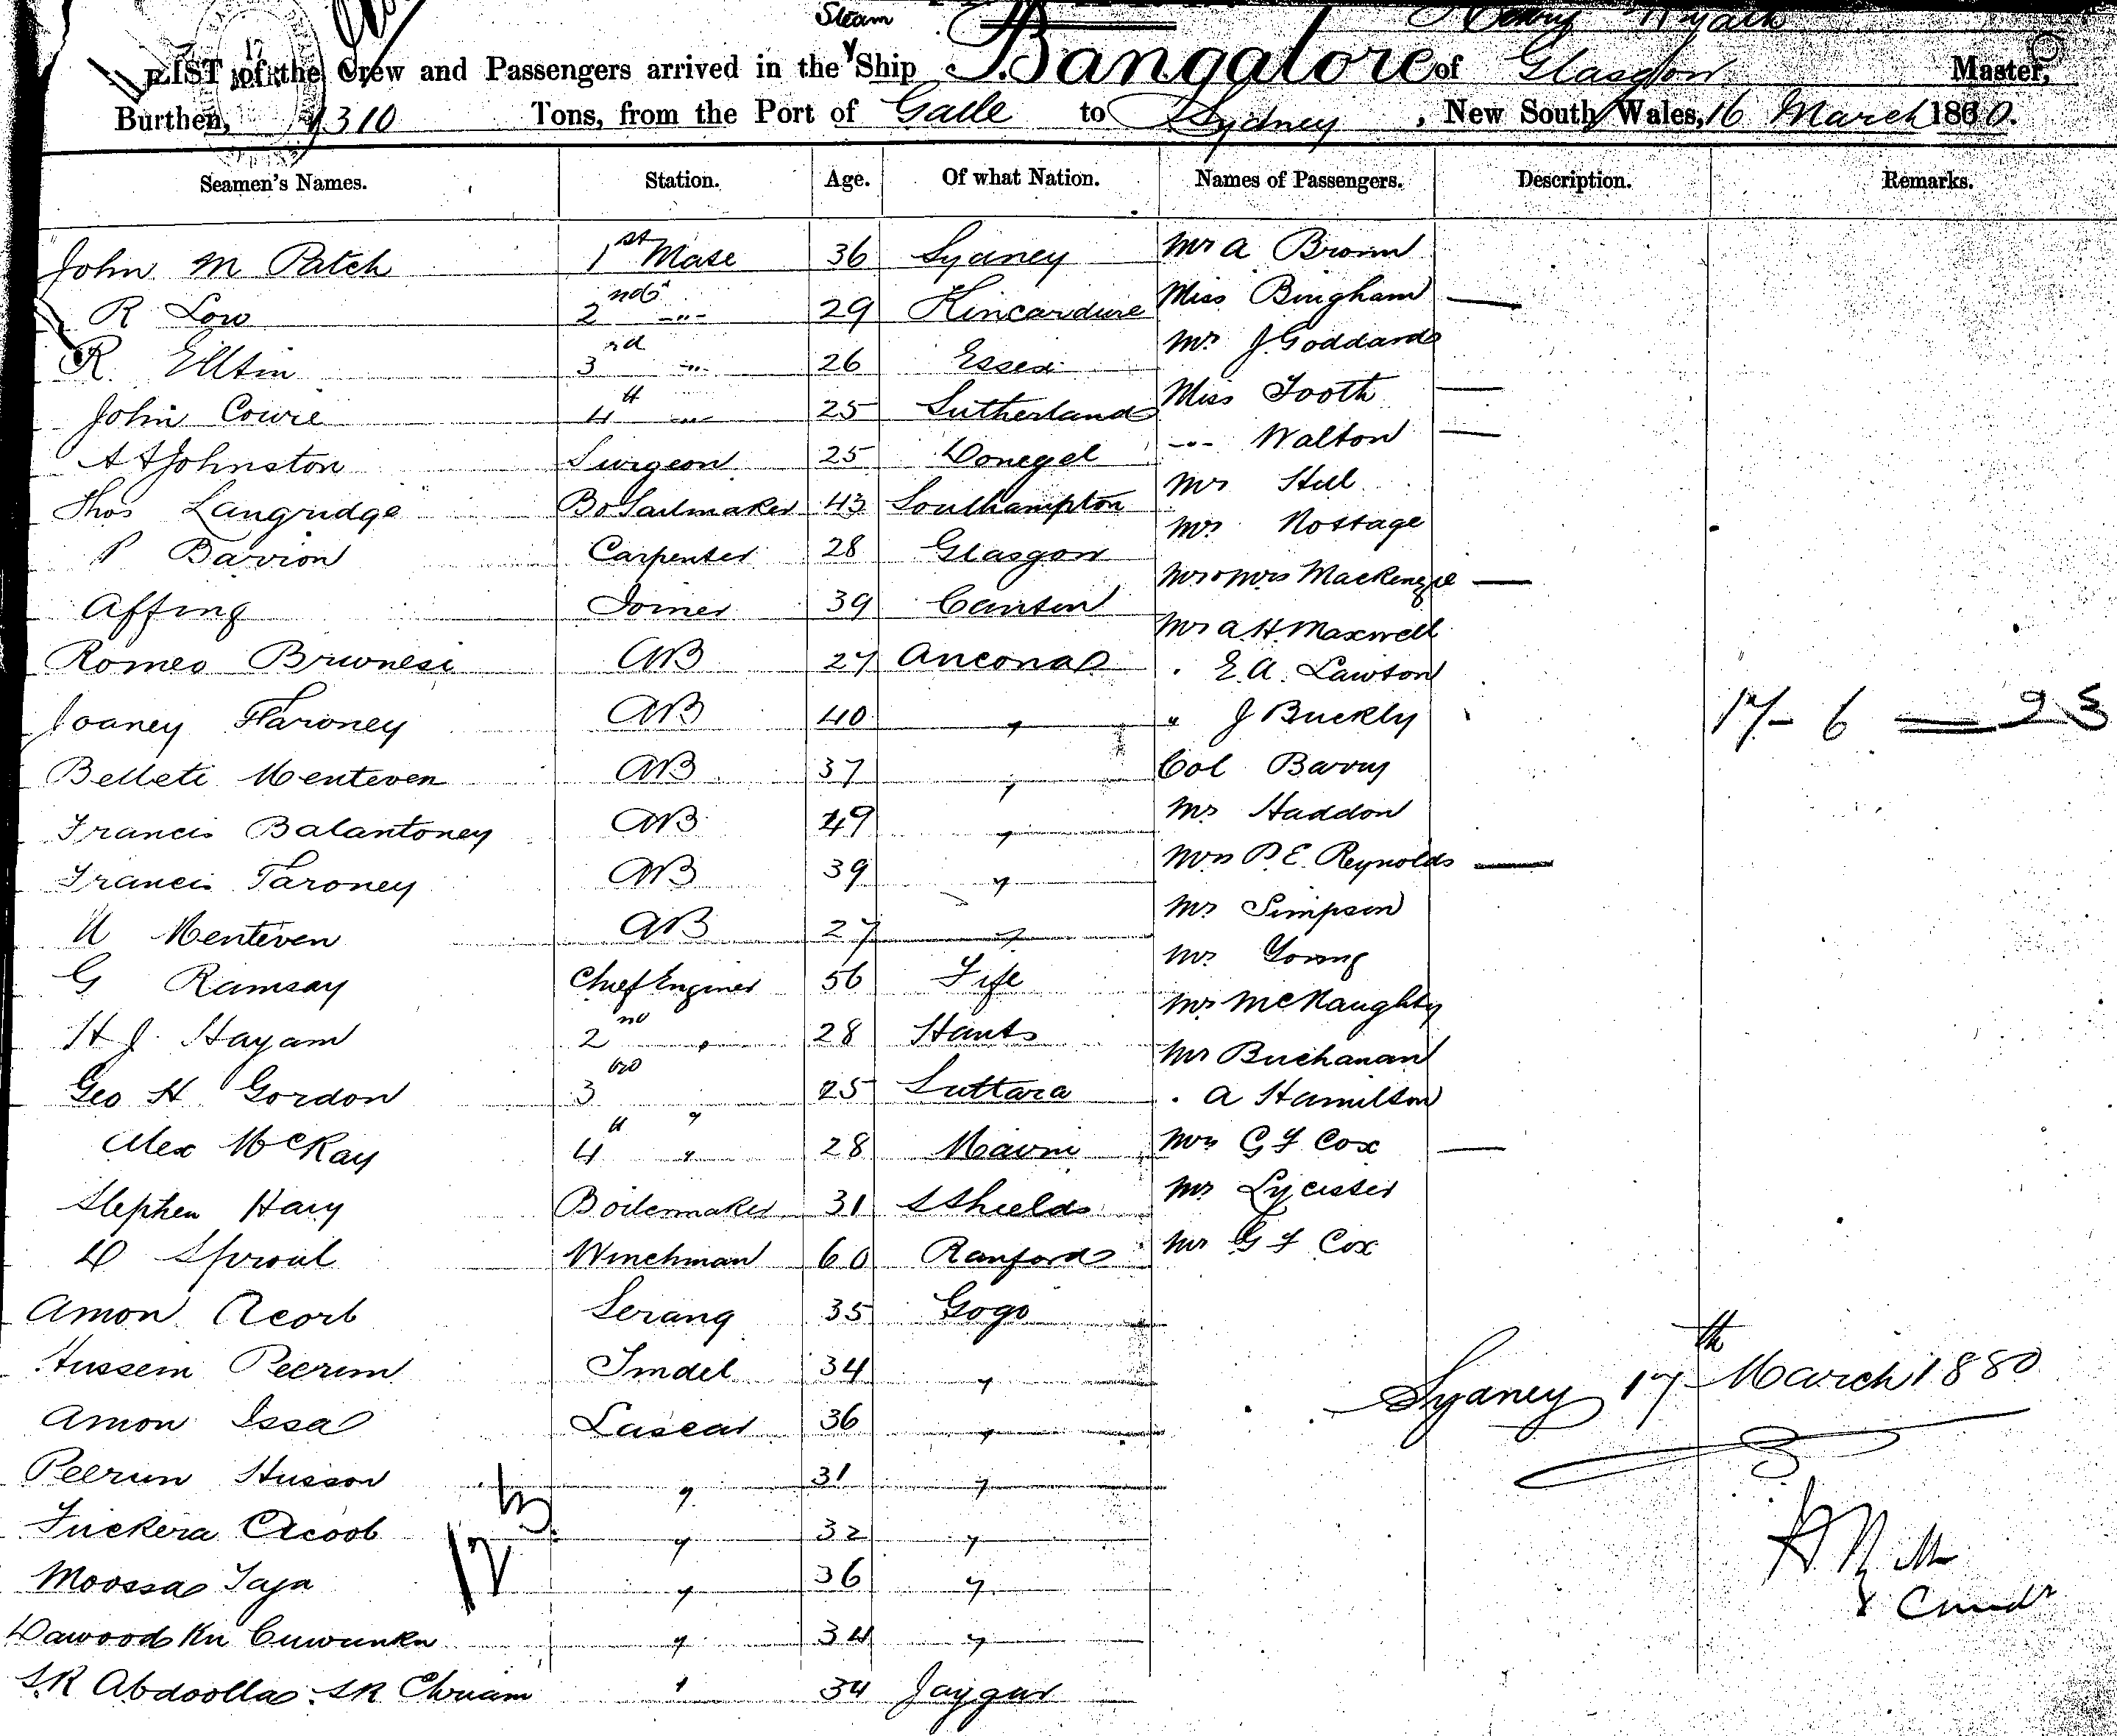 Steam
Henry
LIST of the Crew and Passengers arrived in the Ship Bangalore of Glasgow Master,
Burthen, 1310 Tons, from the Port of Galle to Sydney, New South Wales, 16 March 1880.
Seamen's Names. Station. Age. Of what Nation. Names of Passengers. Description. Remarks.
John M Patch 1st Mate 36 Sydney Mr A Brown
R Low 2nd -"- 29 Kincardine Miss Bingham —
R. Eltin 3rd -"- 26 Essex Mr J. Goddard
John Cowie 4th -"- 25 Sutherland Miss Tooth —
A A Johnston Surgeon 25 Donegal -"- Walton —
Thos Langridge Bo Sailmaker 43 Southampton Mr Hill
P Barron Carpenter 28 Glasgow Mr Nostage
Affing Joiner 39 Canton Mr & Mrs Mackenzie —
Romeo Brunesi AB 27 Ancona Mr A. H. Maxwell
" E. A. Lawton
Joaney Faroney AB 40 " " J Buckly 17 - 6 = 23
Belleti Menteven AB 37 " Col Barry
Francis Balantoney AB 49 " Mr Haddon
Francis Faroney AB 39 " Mrs P. E. Reynolds —
U Menteven AB 27 " Mr Simpson
Mr Young
G Ramsay Chief Engineer 56 Fife Mr McNaughty
H J. Hayam 2nd " 28 Hants Mr Buchanan
Geo H Gordon 3rd " 25 Suttara " A Hamilton
Alex McKay 4th " 28 Mrs G F Cox —
Stephen Hay Boilermaker 31 S Shields Mr
D Sproul Winchman 60 Ranford Mr G F Cox
Amon Acorb Serang 35 Gogo
Hussein Peerun Tindel 34 "
Sydney 17th March 1880
Amon Issa Lascar 36 "
Peerun Husson " 31 "
Fuckera Acoob " 32 "
Moossa Taja " 36 "
Comdr
Dawood " 34 "
S.K Abdoolla SK " 34 Jaygur